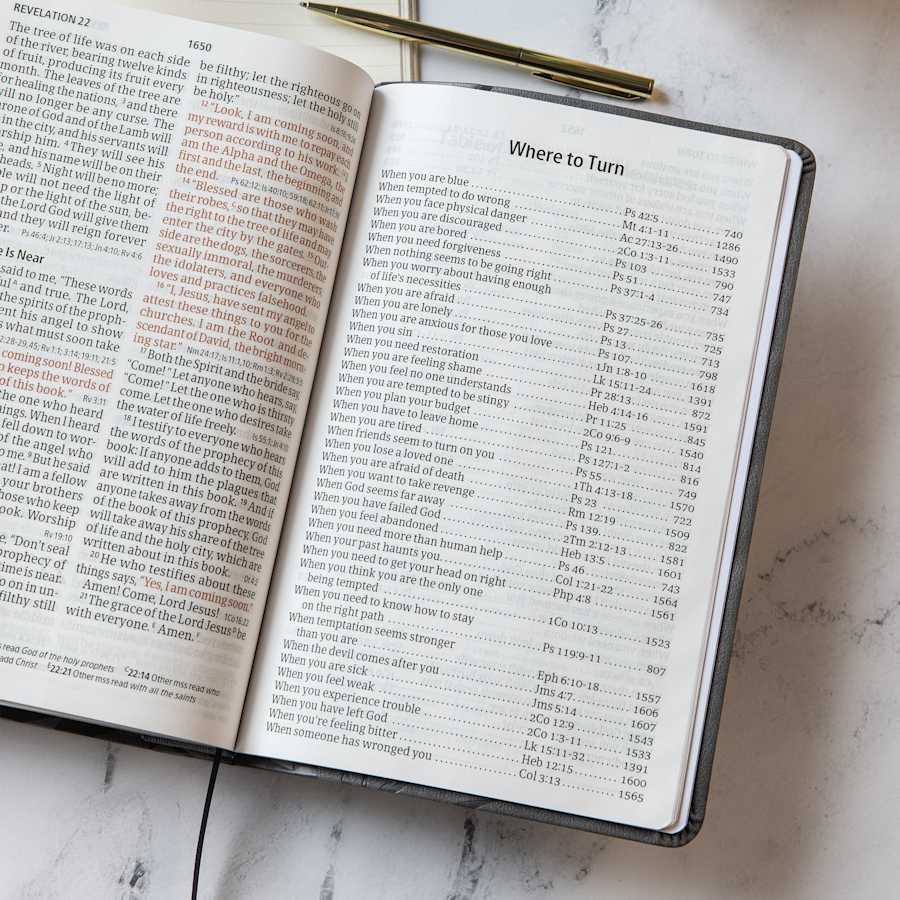 REVELATION 22
1650
The tree of life was on each side
of the river, bearing twelve kinds
of fruit, producing its fruit every
month. The leaves of the tree are
for healing the nations, ³ and there
will no longer be any curse. The
throne of God and of the Lamb will
in the city, and his servants will
ship him. ⁴ They will see his
, and his name will be on their
heads. ⁵ Night will be no more;
ple will not need the light of
p or the light of the sun, be-
the Lord God will give them
and they will reign forever
Ps 46:4; Jr 2:13; 17:13; Jn 4:10; Rv 4:6
e Is Near
said to me, "These words
and true. The Lord,
the spirits of the proph-
ent his angel to show
s what must soon take
coming soon! Blessed
o keeps the words of
of this book."
Rv 3:11
the one who heard
ings. When I heard
fell down to wor-
of the angel who
o me. ⁹ But he said
at! I am a fellow
your brothers
hose who keep
ook. Worship
Rv 19:10
e, "Don't seal
prophecy of
time is near.
o on in un-
filthy still
be filthy; let the righteous go on
in righteousness; let the holy still
be holy."
¹² "Look, I am coming soon, and
my reward is with me to repay each
person according to his work. ¹³ I
am the Alpha and the Omega, the
first and the last, the beginning and
the end.
¹⁴ "Blessed are those who wash
their robes, so that they may have
the right to the tree of life and may
enter the city by the gates. ¹⁵ Out-
side are the dogs, the sorcerers, the
sexually immoral, the murderers,
the idolaters, and everyone who
loves and practices falsehood.
¹⁶ "I, Jesus, have sent my angel to
attest these things to you for the
churches. I am the Root and de-
scendant of David, the bright morn-
ing star."
¹⁷ Both the Spirit and the bride say,
"Come!" Let anyone who hears, say,
"Come!" Let the one who is thirsty
come. Let the one who desires take
the water of life freely.
¹⁸ I testify to everyone who hears
the words of the prophecy of this
book: If anyone adds to them, God
will add to him the plagues that
are written in this book. ¹⁹ And if
anyone takes away from the words
of the book of this prophecy, God
will take away his share of the tree
of life and the holy city, which are
written about in this book.
²⁰ He who testifies about these
things says, "Yes, I am coming soon."
Amen! Come, Lord Jesus! 1Co 16:22
²¹ The grace of the Lord Jesus be
with everyone. Amen.
read God of the holy prophets 22:14 Other mss read who
add Christ 22:21 Other mss read with all the saints
Where to Turn
When you are blue Ps 42:5 740
When tempted to do wrong Mt 4:1-11 1286
When you face physical danger Ac 27:13-26 1490
When you are discouraged 2Co 1:3-11 1533
When you are bored Ps 103 790
When you need forgiveness Ps 51 747
When nothing seems to be going right Ps 37:1-4 734
When you worry about having enough
of life's necessities Ps 37:25-26 735
When you are afraid Ps 27 725
When you are lonely Ps 13 713
When you are anxious for those you love Ps 107 798
When you sin 1Jn 1:8-10 1618
When you need restoration Lk 15:11-24 1391
When you are feeling shame Pr 28:13 872
When you feel no one understands Heb 4:14-16 1591
When you are tempted to be stingy Pr 11:25 845
When you plan your budget 2Co 9:6-9 1540
When you have to leave home Ps 121 814
When you are tired Ps 127:1-2 816
When friends seem to turn on you Ps 55 749
When you lose a loved one 1Th 4:13-18 1570
When you are afraid of death Ps 23 722
When you want to take revenge Rm 12:19 1509
When God seems far away Ps 139 822
When you have failed God 2Tm 2:12-13 1581
When you feel abandoned Heb 13:5 1601
When you need more than human help Ps 46 743
When your past haunts you Col 1:21-22 1564
When you need to get your head on right Php 4:8 1561
When you think you are the only one
being tempted 1Co 10:13 1523
When you need to know how to stay
on the right path Ps 119:9-11 807
When temptation seems stronger
than you are Eph 6:10-18 1557
When the devil comes after you Jms 4:7 1606
When you are sick Jms 5:14 1607
When you feel weak 2Co 12:9 1543
When you experience trouble 2Co 1:3-11 1533
When you have left God Lk 15:11-32 1391
When you're feeling bitter Heb 12:15 1600
When someone has wronged you Col 3:13 1565